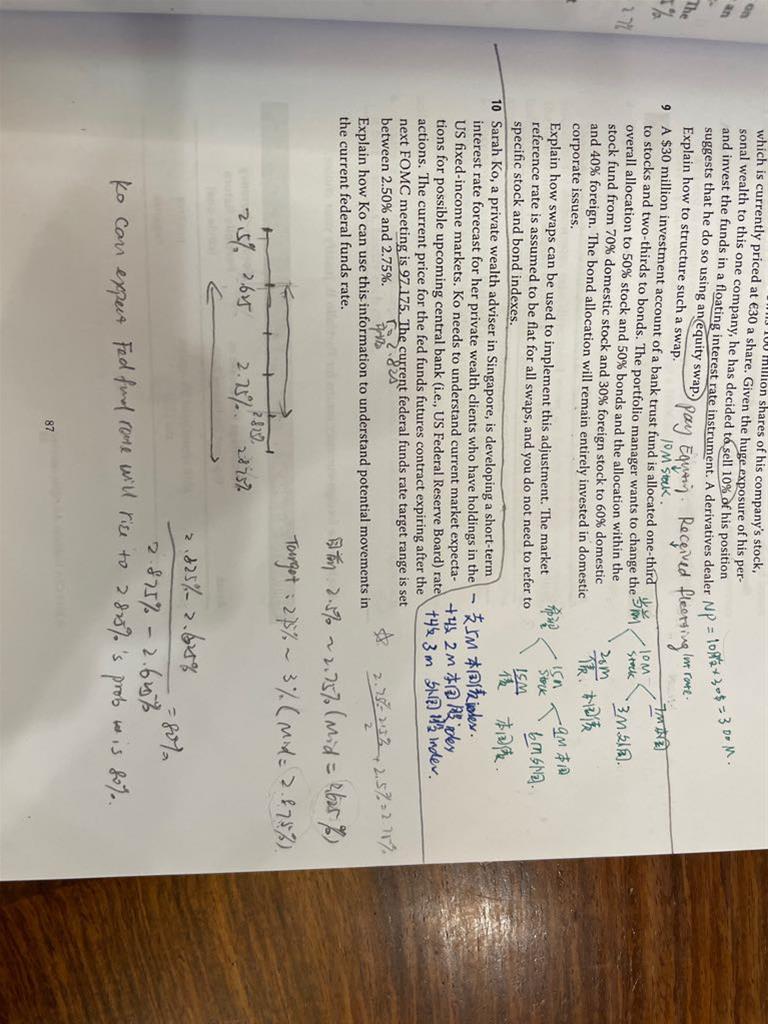 on
an
The
5%
2.7%
which is currently priced at €30 a share. Given the huge exposure of his per-
sonal wealth to this one company, he has decided to sell 10% of his position
and invest the funds in a floating interest rate instrument. A derivatives dealer
suggests that he do so using an equity swap.
Explain how to structure such a swap.
NP = 30M.
pay Equity. Received floating int rate.
9 A $30 million investment account of a bank trust fund is allocated one-third
to stocks and two-thirds to bonds. The portfolio manager wants to change the
overall allocation to 50% stock and 50% bonds and the allocation within the
stock fund from 70% domestic stock and 30% foreign stock to 60% domestic
and 40% foreign. The bond allocation will remain entirely invested in domestic
corporate issues.
10M stock.
10M
stock
7M 本国
3M 外国.
20M
债 本国债
Explain how swaps can be used to implement this adjustment. The market
reference rate is assumed to be flat for all swaps, and you do not need to refer to
specific stock and bond indexes.
15M
stock
9M 本国
6M 外国.
15M
债 本国债.
10 Sarah Ko, a private wealth adviser in Singapore, is developing a short-term
interest rate forecast for her private wealth clients who have holdings in the
US fixed-income markets. Ko needs to understand current market expecta-
tions for possible upcoming central bank (i.e., US Federal Reserve Board) rate
actions. The current price for the fed funds futures contract expiring after the
next FOMC meeting is 97.175. The current federal funds rate target range is set
between 2.50% and 2.75%.
一支5M 本国债index.
+收 2M 本国股index
+收 3M 外国股index.
2.825
Explain how Ko can use this information to understand potential movements in
the current federal funds rate.
目前: 2.5% ~ 2.75% (Mid = 2.625%)
Target: 2.75% ~ 3% (Mid = 2.875%).
2.5% 2.625 2.75% 2.825 2.875%
2.825% - 2.625%
2.875% - 2.625% = 80%
Ko can expect Fed fund rate will rise to 2.825%'s prob is 80%.
87